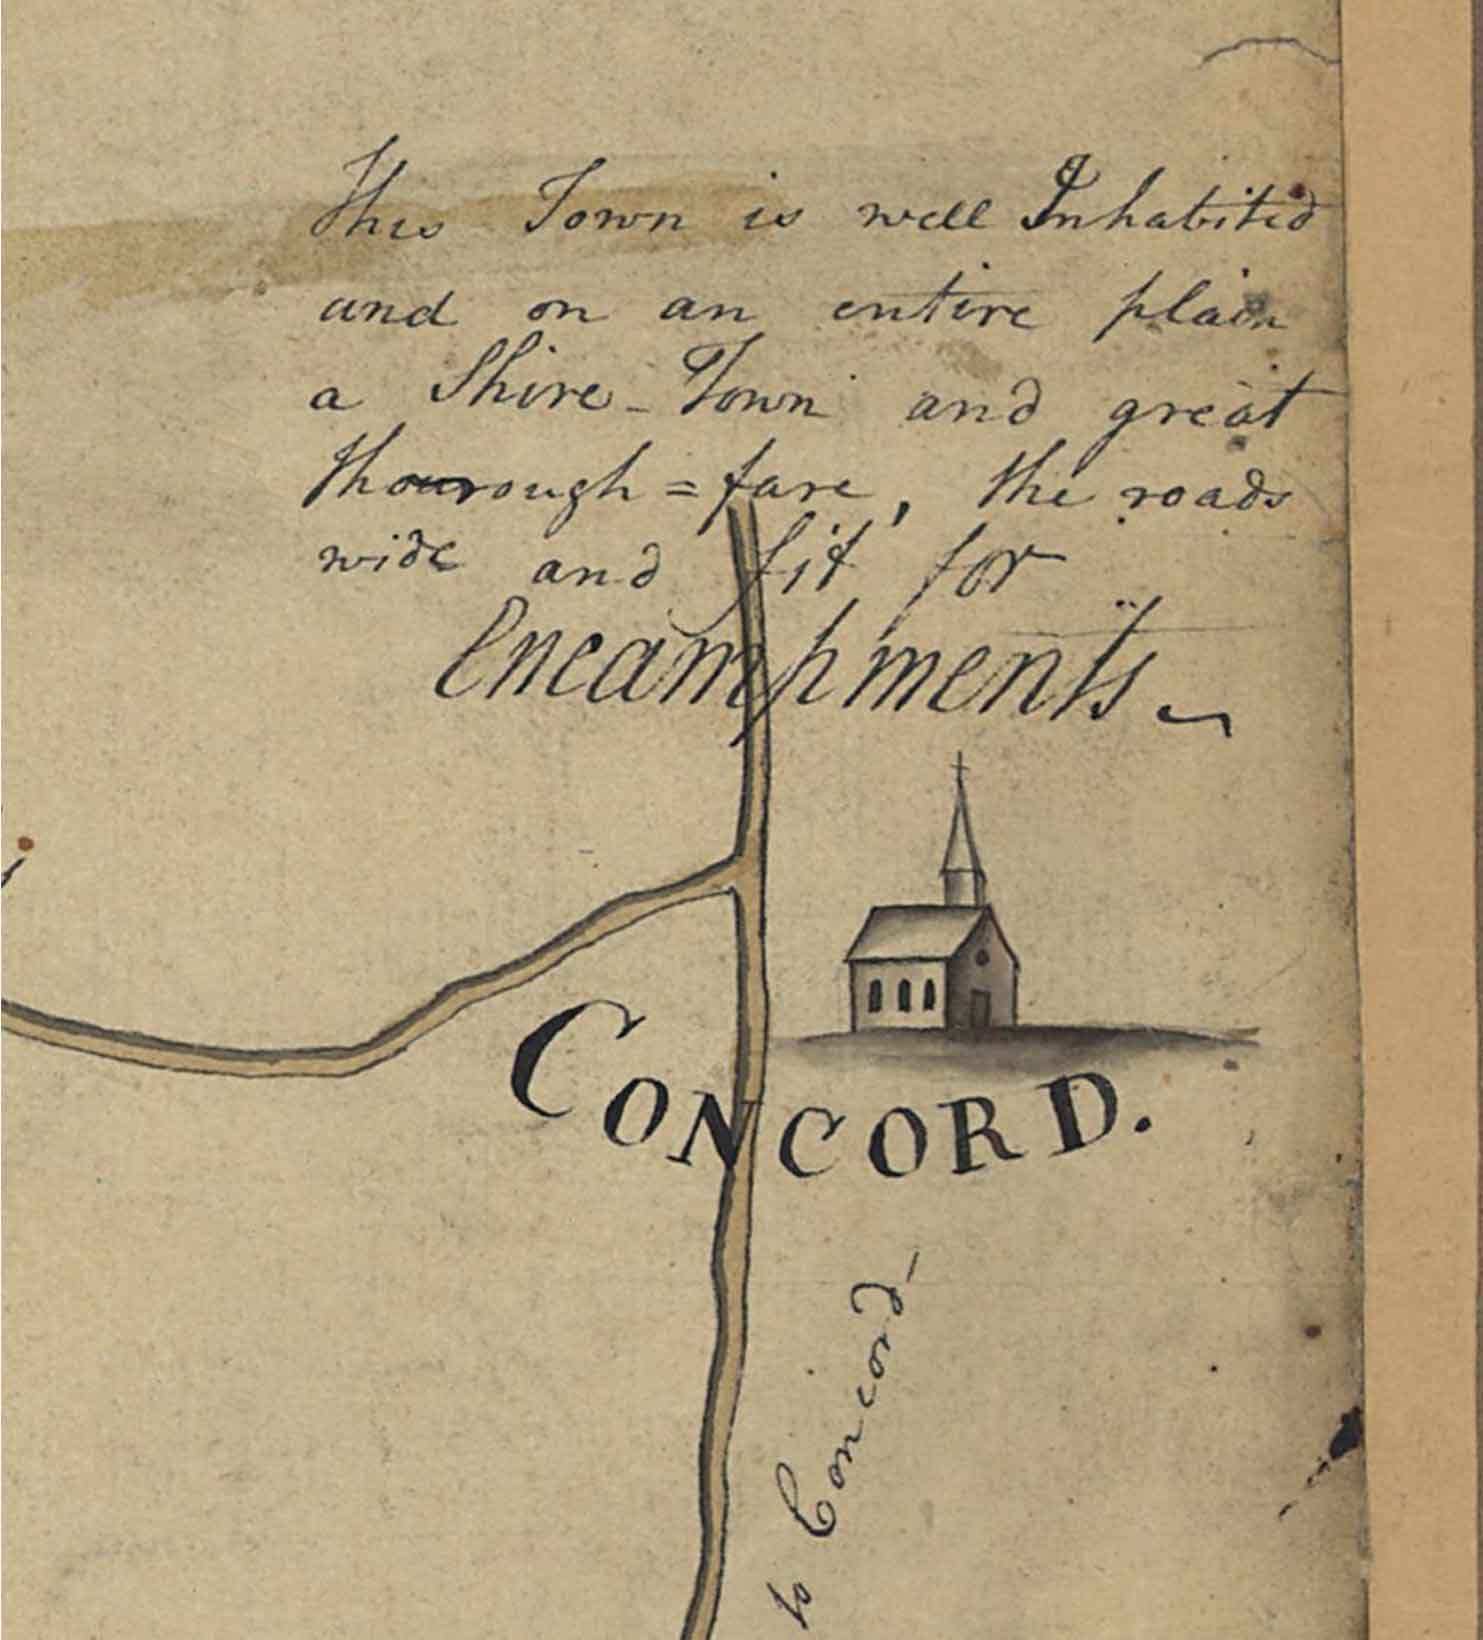 This Town is well Inhabited
and on an entire plain
a Shire-Town and great
thourough=fare, the roads
wide and fit for
Encampments
CONCORD.
to Concord